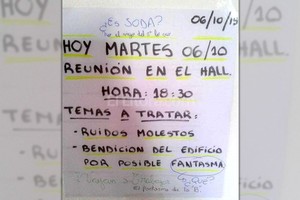 ¿Es SODA?
06/10/15
HOY MARTES 06/10
REUNIÓN EN EL HALL.
HORA: 18:30
TEMAS A TRATAR:
- RUIDOS MOLESTOS
- BENDICION DEL EDIFICIO
POR POSIBLE FANTASMA